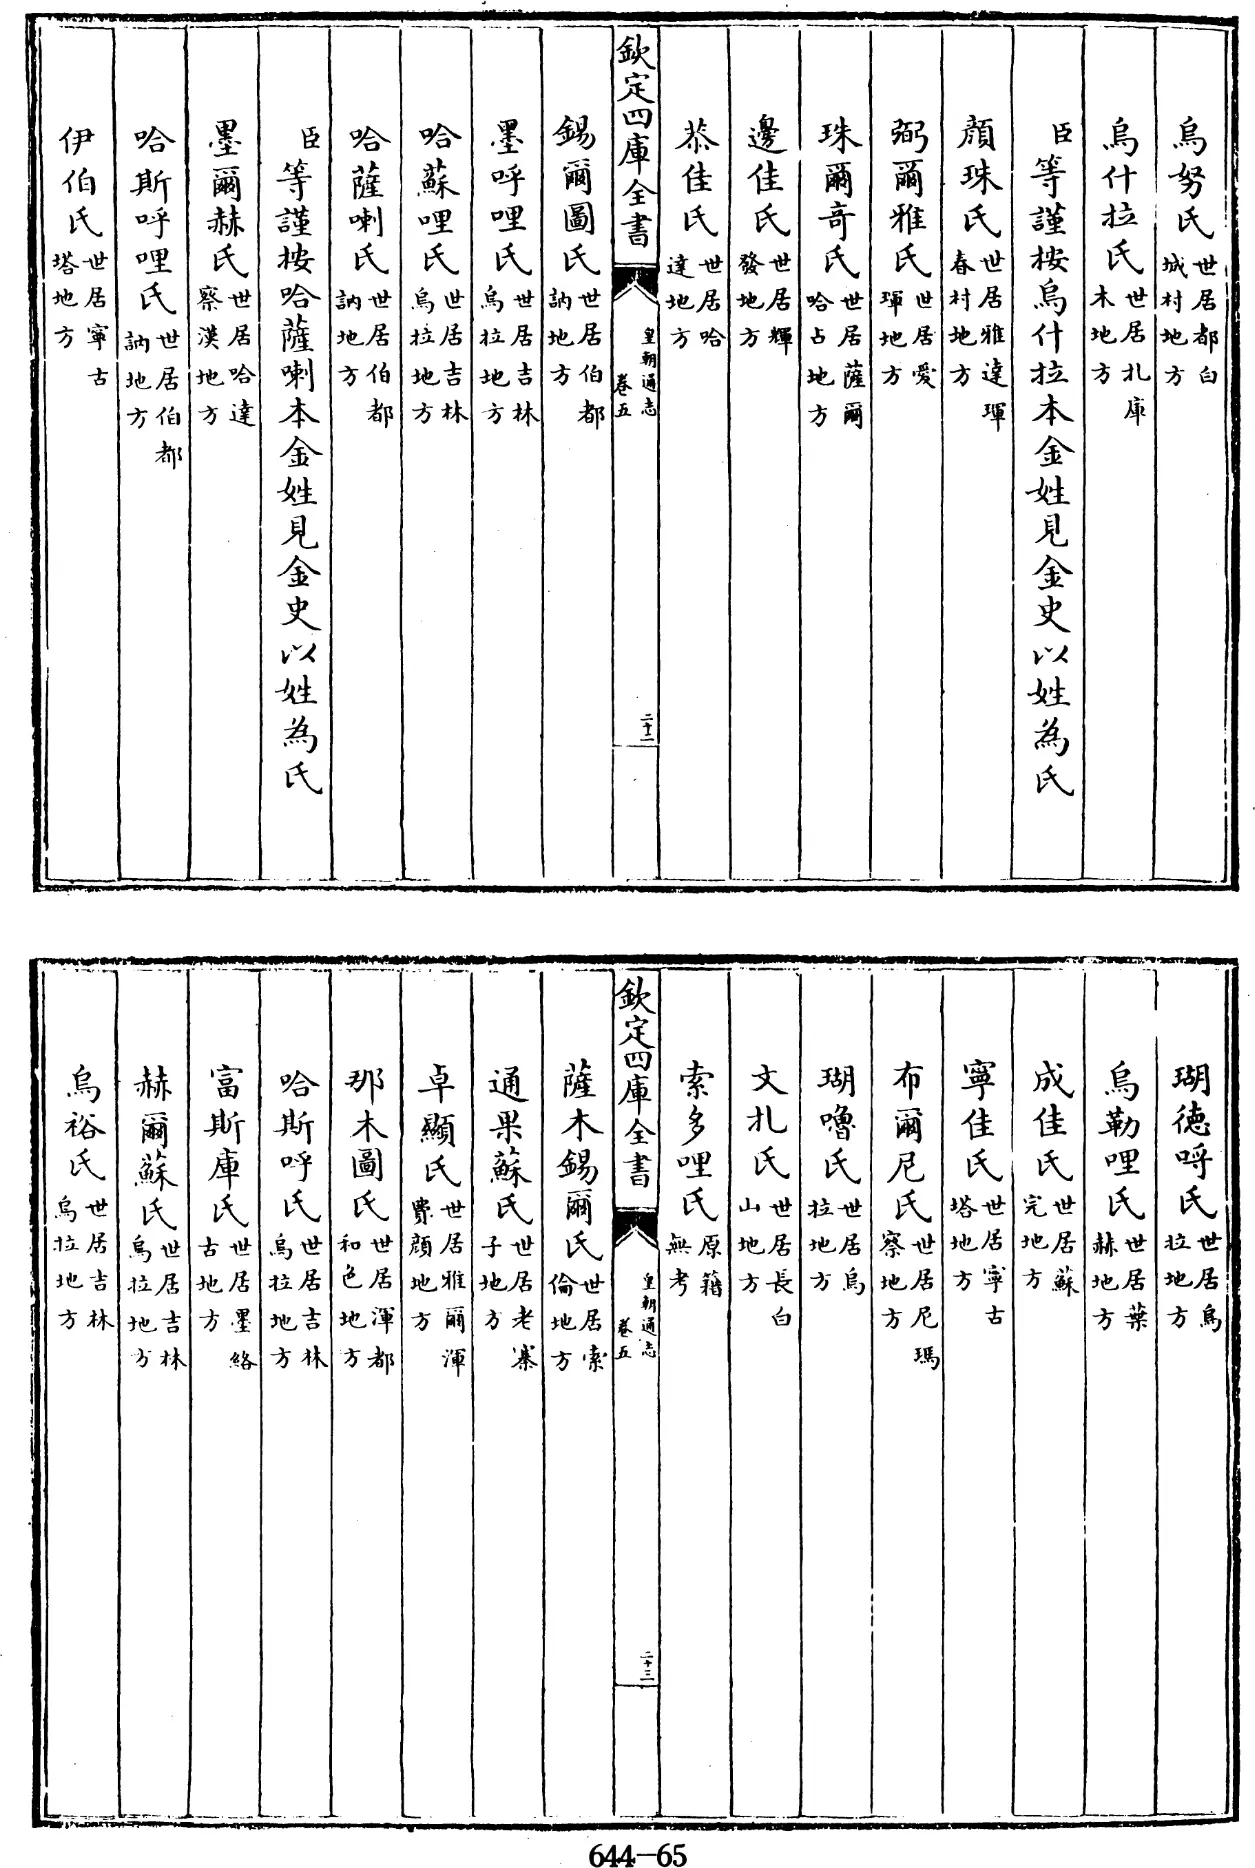 烏努氏世居都白城村地方
烏什拉氏世居扎庫木地方
臣等謹按烏什拉本金姓見金史以姓為氏
顔珠氏世居雅達琿春村地方
弼爾雅氏世居愛琿地方
珠爾竒氏世居薩爾哈占地方
邊佳氏世居輝發地方
恭佳氏世居哈達地方
欽定四庫全書
皇朝通志
卷五
二十二
錫爾圖氏世居伯都訥地方
墨呼哩氏世居吉林烏拉地方
哈蘇哩氏世居吉林烏拉地方
哈薩喇氏世居伯都訥地方
臣等謹按哈薩喇本金姓見金史以姓為氏
墨爾赫氏世居哈達察漢地方
哈斯呼哩氏世居伯都訥地方
伊伯氏世居寧古塔地方
瑚德呼氏世居烏拉地方
烏勒哩氏世居葉赫地方
成佳氏世居蘇完地方
寧佳氏世居寧古塔地方
布爾尼氏世居尼瑪察地方
瑚嚕氏世居烏拉地方
文扎氏世居長白山地方
索多哩氏原籍無考
欽定四庫全書
皇朝通志
卷五
二十三
薩木錫爾氏世居索倫地方
通果蘇氏世居老寨子地方
卓顯氏世居雅爾渾費顔地方
那木圖氏世居渾都和色地方
哈斯呼氏世居吉林烏拉地方
富斯庫氏世居墨絡古地方
赫爾蘇氏世居吉林烏拉地方
烏裕氏世居吉林烏拉地方
644-65